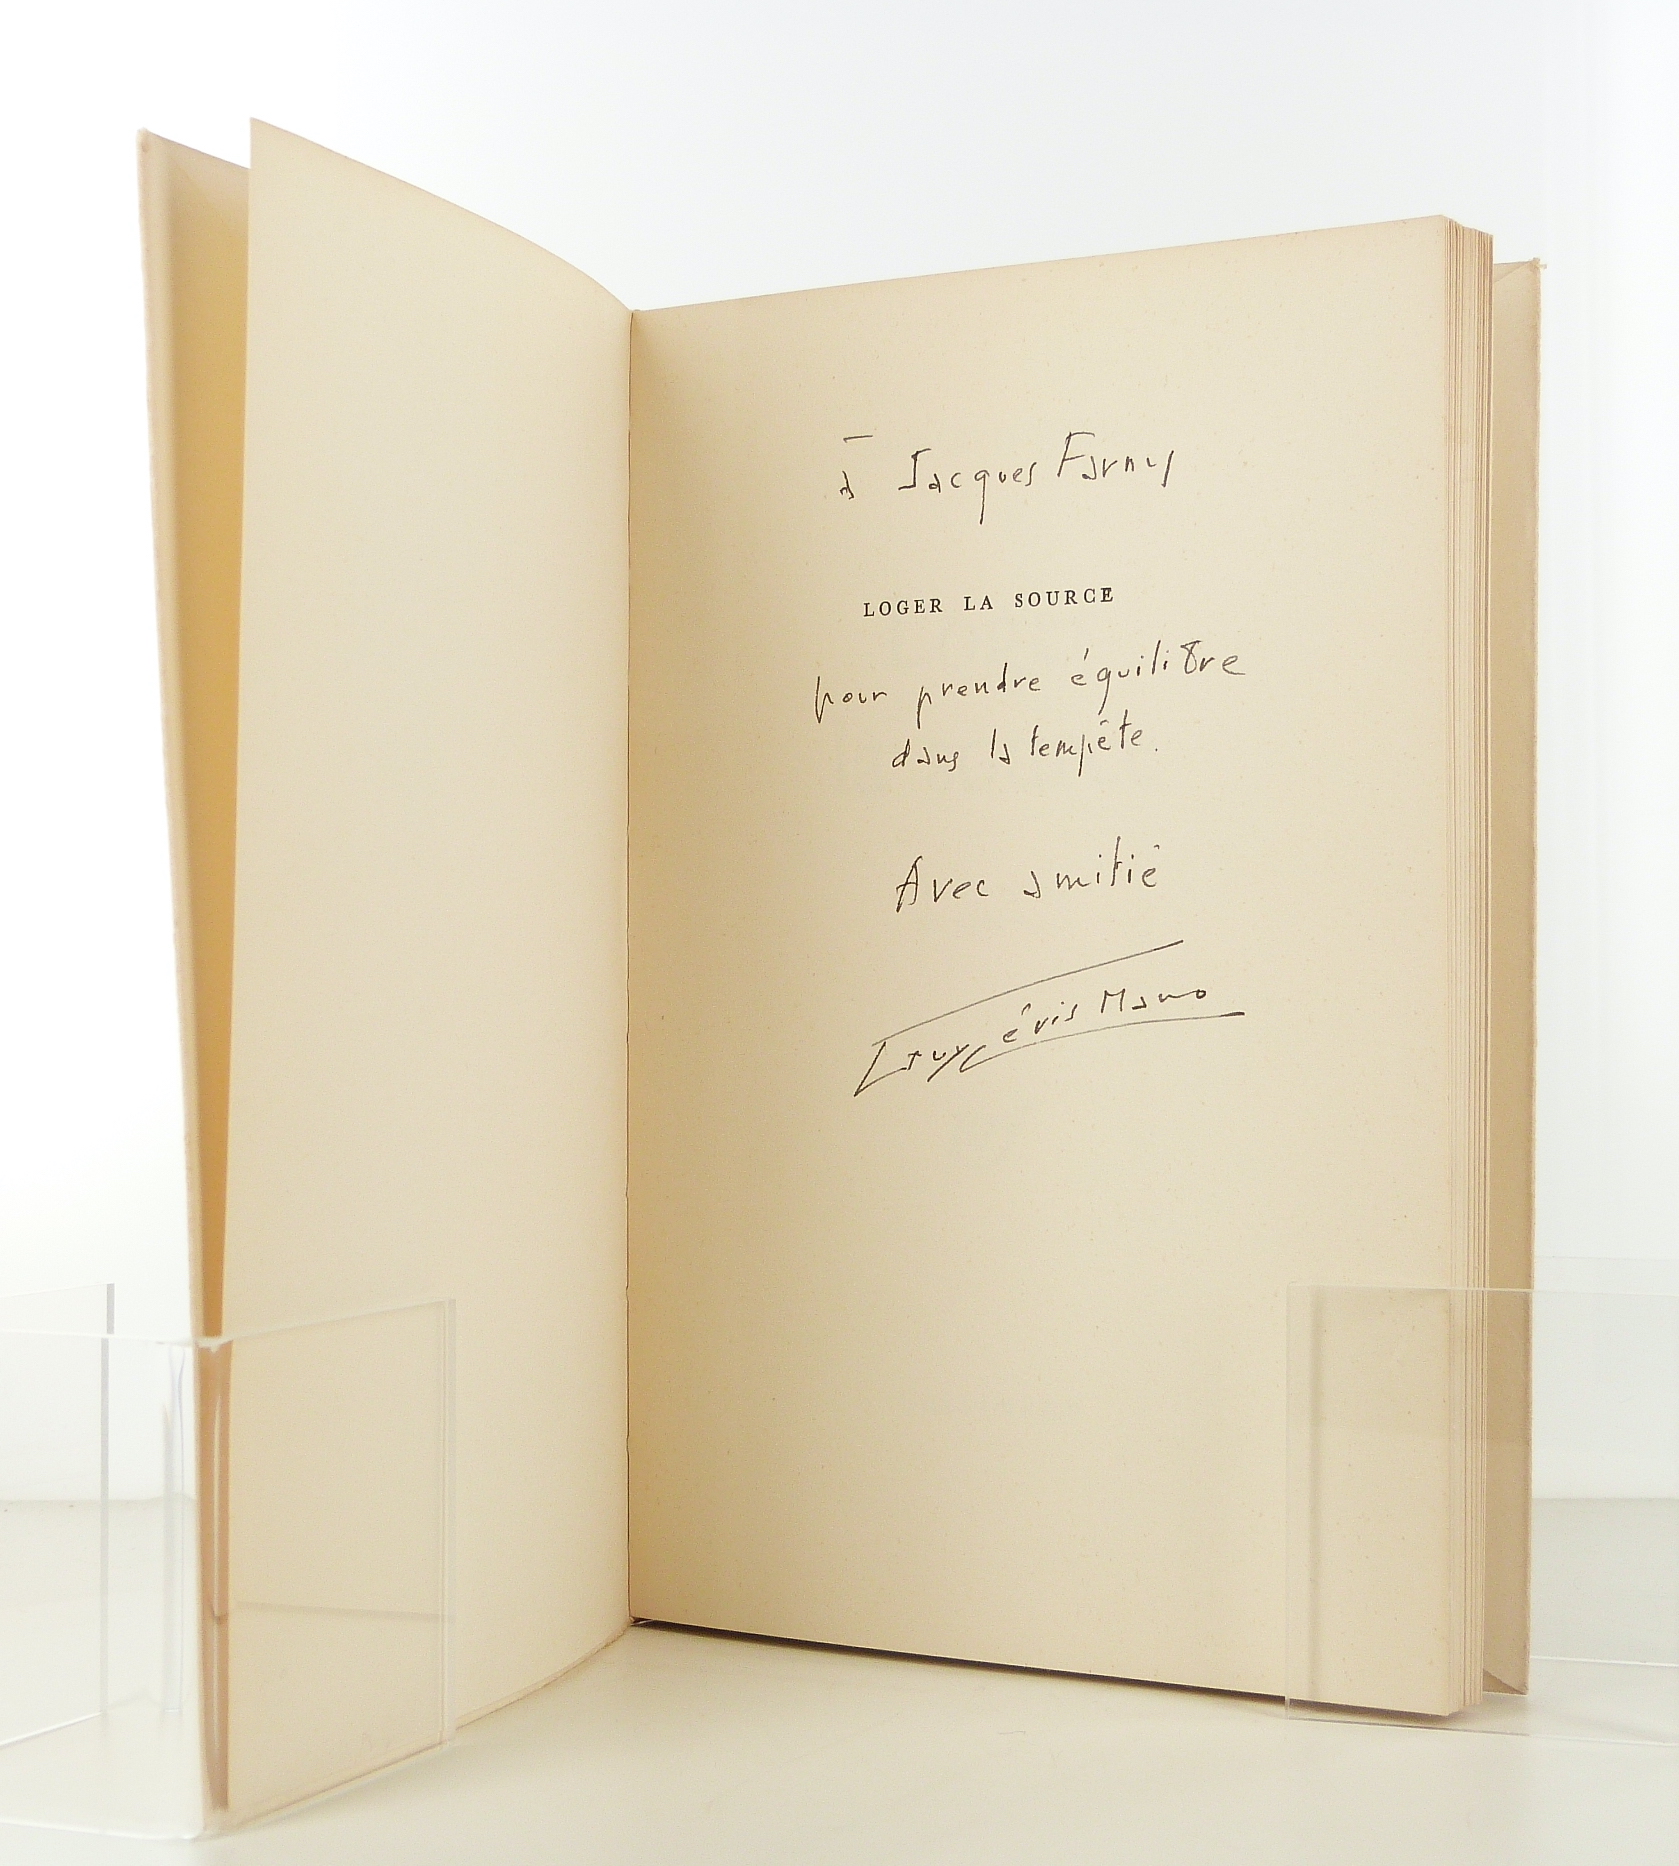 à Jacques Farny
LOGER LA SOURCE
pour prendre équilibre
dans la tempête.
Avec amitié
Guy Lévis Mano